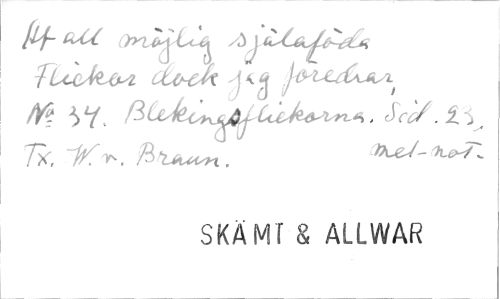 Af all möjlig själaföda
Flickor dock jag föredrar,
No 34. Blekingsflickorna. Sid. 23,
Tx. W. v. Braun. mel-not-
SKÄMT & ALLWAR